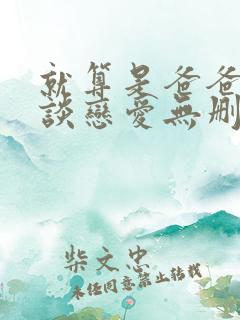 就算是爸爸
談戀愛無删
柴文忠
未经同意禁止转载